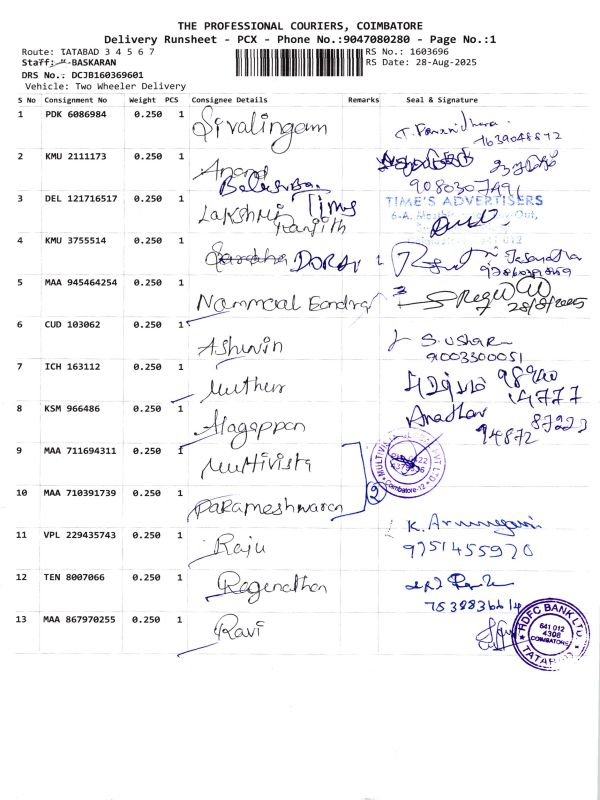 THE PROFESSIONAL COURIERS, COIMBATORE
Delivery Runsheet - PCX - Phone No.:9047080280 - Page No.:1
Route: TATABAD 3 4 5 6 7
RS No.: 1603696
Staff: BASKARAN
RS Date: 28-Aug-2025
DRS No.: DCJB160369601
Vehicle: Two Wheeler Delivery
S No Consignment No Weight PCS Consignee Details Remarks Seal & Signature
1 PDK 6086984 0.250 1 Sivalingam
7639048872
2 KMU 2111173 0.250 1 Anand
9080307491
3 DEL 121716517 0.250 1 Lakshmi Times
TIME'S ADVERTISERS
Ranjith
4 KMU 3755514 0.250 1
5 MAA 945464254 0.250 1 Nammaal
28/8/2025
6 CUD 103062 0.250 1 Ashwin
9003300051
7 ICH 163112 0.250 1 Muthu
98940
14777
8 KSM 966486 0.250 1 Alagappan
87223
94872
9 MAA 711694311 0.250 1 Multivista
Coimbatore-12
10 MAA 710391739 0.250 1 Parameshwaran
2
11 VPL 229435743 0.250 1 Raju K. Arumugam
9751455970
12 TEN 8007066 0.250 1 Ragenathan
13 MAA 867970255 0.250 1 Ravi
HDFC BANK LTD.
641 012
4308
COIMBATORE
TATABAD